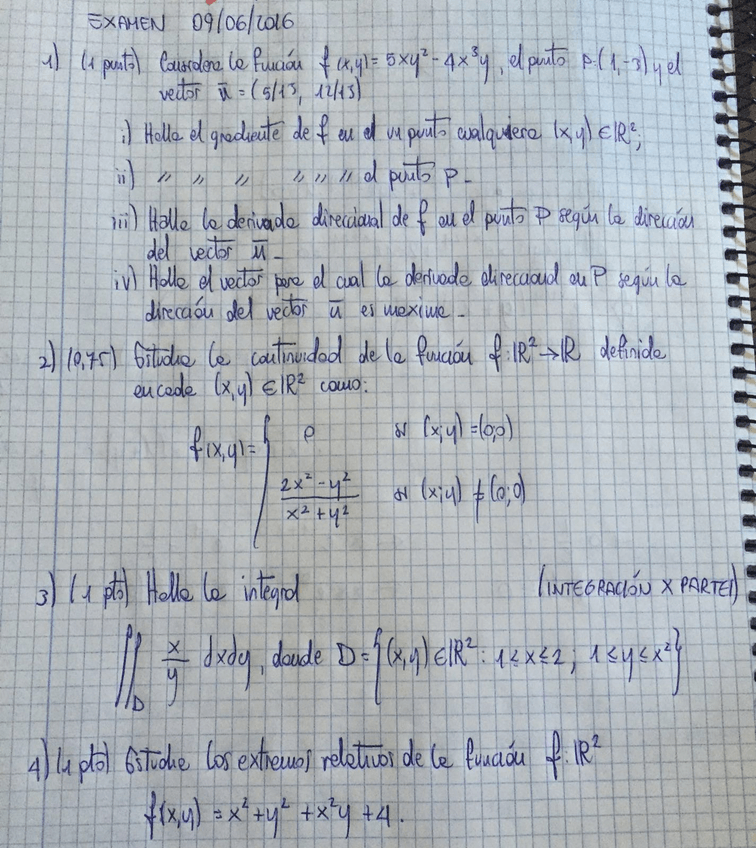 EXAMEN 09/06/2016
1) (1 punto) Considere la función f(x,y)=5xy²-4x³y, el punto P:(1,-3) y el
vector ū=(5/13, 12/13)
i) Halle el gradiente de f en el un punto cualquiera (x,y)∈ℝ²;
ii) " " " " " " el punto P-
iii) Halle la derivada direccional de f en el punto P según la dirección
del vector ū-
iv) Halle el vector para el cual la derivada direccional en P según la
dirección del vector ū es maxima-
2) (0,75) Estudie la continuidad de la función f:ℝ²→ℝ definida
en cada (x,y)∈ℝ² como:
f(x,y)={ 0 si (x;y)=(0;0)
(2x²-y²)/(x²+y²) si (x;y)≠(0;0)
3) (1 pto) Halle la integral (INTEGRACIÓN X PARTES)
∬_D x/y dxdy, donde D={(x,y)∈ℝ²: 1≤x≤2; 1≤y≤x²}
4) (1 pto) Estudie los extremos relativos de la función f:ℝ²
f(x,y)=x²+y²+x²y+4.